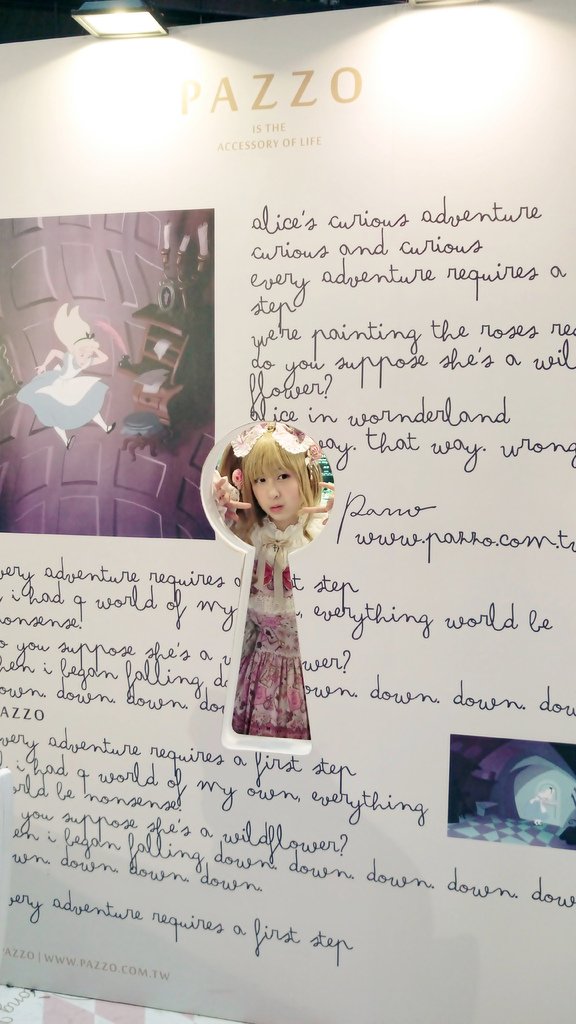 PAZZO
IS THE
ACCESSORY OF LIFE
alice's curious adventure
curious and curious
every adventure requires a
step
we're painting the roses
do you suppose she's a
flower?
alice in wornderland
way. that way. wrong
Pazzo
www.pazzo.com.tw
every adventure requires a first step
i had a world of my own, everything world be
nonsense!
you suppose she's a wildflower?
when i began falling down. down. down.
down. down. down. down.
PAZZO
every adventure requires a first step
i had a world of my own, everything
world be nonsense!
you suppose she's a wildflower?
when i began falling down. down. down. down. down.
down. down. down. down.
every adventure requires a first step
PAZZO | WWW.PAZZO.COM.TW